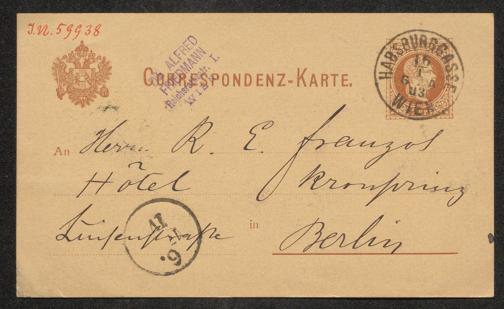 I.N. 59938
ALFRED
FRIEDMANN
WIEN
CORRESPONDENZ-KARTE.
HABSBURGGASSE
WIEN
An Herrn K. E. Franzos
Hôtel Kronprinz
Luisenstraße in Berlin